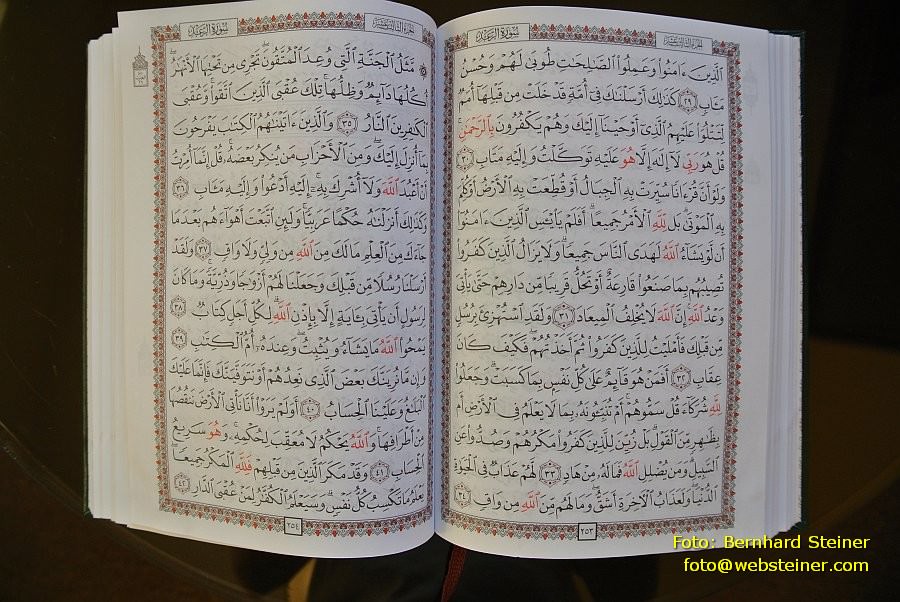 سورة الرعد
الجزء الثالث عشر
الَّذِينَ ءَامَنُوا وَعَمِلُوا الصَّـٰلِحَـٰتِ طُوبَىٰ لَهُمْ وَحُسْنُ
مَـَٔابٍ ٢٩ كَذَٰلِكَ أَرْسَلْنَـٰكَ فِىٓ أُمَّةٍ قَدْ خَلَتْ مِن قَبْلِهَآ أُمَمٌ
لِّتَتْلُوَا عَلَيْهِمُ الَّذِىٓ أَوْحَيْنَآ إِلَيْكَ وَهُمْ يَكْفُرُونَ بِالرَّحْمَـٰنِ
قُلْ هُوَ رَبِّى لَآ إِلَـٰهَ إِلَّا هُوَ عَلَيْهِ تَوَكَّلْتُ وَإِلَيْهِ مَتَابِ ٣٠
وَلَوْ أَنَّ قُرْءَانًا سُيِّرَتْ بِهِ الْجِبَالُ أَوْ قُطِّعَتْ بِهِ الْأَرْضُ أَوْ كُلِّمَ
بِهِ الْمَوْتَىٰ بَل لِّلَّهِ الْأَمْرُ جَمِيعًا أَفَلَمْ يَا۟يْـَٔسِ الَّذِينَ ءَامَنُوٓا
أَن لَّوْ يَشَآءُ اللَّهُ لَهَدَى النَّاسَ جَمِيعًا وَلَا يَزَالُ الَّذِينَ كَفَرُوا
تُصِيبُهُم بِمَا صَنَعُوا قَارِعَةٌ أَوْ تَحُلُّ قَرِيبًا مِّن دَارِهِمْ حَتَّىٰ يَأْتِىَ
وَعْدُ اللَّهِ إِنَّ اللَّهَ لَا يُخْلِفُ الْمِيعَادَ ٣١ وَلَقَدِ اسْتُهْزِئَ بِرُسُلٍ
مِّن قَبْلِكَ فَأَمْلَيْتُ لِلَّذِينَ كَفَرُوا ثُمَّ أَخَذْتُهُمْ فَكَيْفَ كَانَ
عِقَابِ ٣٢ أَفَمَنْ هُوَ قَآئِمٌ عَلَىٰ كُلِّ نَفْسٍ بِمَا كَسَبَتْ وَجَعَلُوا
لِلَّهِ شُرَكَآءَ قُلْ سَمُّوهُمْ أَمْ تُنَبِّـُٔونَهُۥ بِمَا لَا يَعْلَمُ فِى الْأَرْضِ أَم
بِظَـٰهِرٍ مِّنَ الْقَوْلِ بَلْ زُيِّنَ لِلَّذِينَ كَفَرُوا مَكْرُهُمْ وَصُدُّوا عَنِ
السَّبِيلِ وَمَن يُضْلِلِ اللَّهُ فَمَا لَهُۥ مِنْ هَادٍ ٣٣ لَّهُمْ عَذَابٌ فِى الْحَيَوٰةِ
الدُّنْيَا وَلَعَذَابُ الْءَاخِرَةِ أَشَقُّ وَمَا لَهُم مِّنَ اللَّهِ مِن وَاقٍ ٣٤
٢٥٣
الجزء الثالث عشر
سورة الرعد
مَّثَلُ الْجَنَّةِ الَّتِى وُعِدَ الْمُتَّقُونَ تَجْرِى مِن تَحْتِهَا الْأَنْهَـٰرُ
أُكُلُهَا دَآئِمٌ وَظِلُّهَا تِلْكَ عُقْبَى الَّذِينَ اتَّقَوا وَّعُقْبَى
الْكَـٰفِرِينَ النَّارُ ٣٥ وَالَّذِينَ ءَاتَيْنَـٰهُمُ الْكِتَـٰبَ يَفْرَحُونَ
بِمَآ أُنزِلَ إِلَيْكَ وَمِنَ الْأَحْزَابِ مَن يُنكِرُ بَعْضَهُۥ قُلْ إِنَّمَآ أُمِرْتُ
أَنْ أَعْبُدَ اللَّهَ وَلَآ أُشْرِكَ بِهِۦٓ إِلَيْهِ أَدْعُوا وَإِلَيْهِ مَـَٔابِ ٣٦
وَكَذَٰلِكَ أَنزَلْنَـٰهُ حُكْمًا عَرَبِيًّا وَلَئِنِ اتَّبَعْتَ أَهْوَآءَهُم بَعْدَمَا
جَآءَكَ مِنَ الْعِلْمِ مَا لَكَ مِنَ اللَّهِ مِن وَلِىٍّ وَلَا وَاقٍ ٣٧ وَلَقَدْ
أَرْسَلْنَا رُسُلًا مِّن قَبْلِكَ وَجَعَلْنَا لَهُمْ أَزْوَٰجًا وَذُرِّيَّةً وَمَا كَانَ
لِرَسُولٍ أَن يَأْتِىَ بِـَٔايَةٍ إِلَّا بِإِذْنِ اللَّهِ لِكُلِّ أَجَلٍ كِتَابٌ ٣٨
يَمْحُوا اللَّهُ مَا يَشَآءُ وَيُثْبِتُ وَعِندَهُۥٓ أُمُّ الْكِتَـٰبِ ٣٩
وَإِن مَّا نُرِيَنَّكَ بَعْضَ الَّذِى نَعِدُهُمْ أَوْ نَتَوَفَّيَنَّكَ فَإِنَّمَا عَلَيْكَ
الْبَلَـٰغُ وَعَلَيْنَا الْحِسَابُ ٤٠ أَوَلَمْ يَرَوْا أَنَّا نَأْتِى الْأَرْضَ نَنقُصُهَا
مِنْ أَطْرَافِهَا وَاللَّهُ يَحْكُمُ لَا مُعَقِّبَ لِحُكْمِهِۦ وَهُوَ سَرِيعُ
الْحِسَابِ ٤١ وَقَدْ مَكَرَ الَّذِينَ مِن قَبْلِهِمْ فَلِلَّهِ الْمَكْرُ جَمِيعًا
يَعْلَمُ مَا تَكْسِبُ كُلُّ نَفْسٍ وَسَيَعْلَمُ الْكُفَّـٰرُ لِمَنْ عُقْبَى الدَّارِ ٤٢
٢٥٤
Foto: Bernhard Steiner
foto@websteiner.com